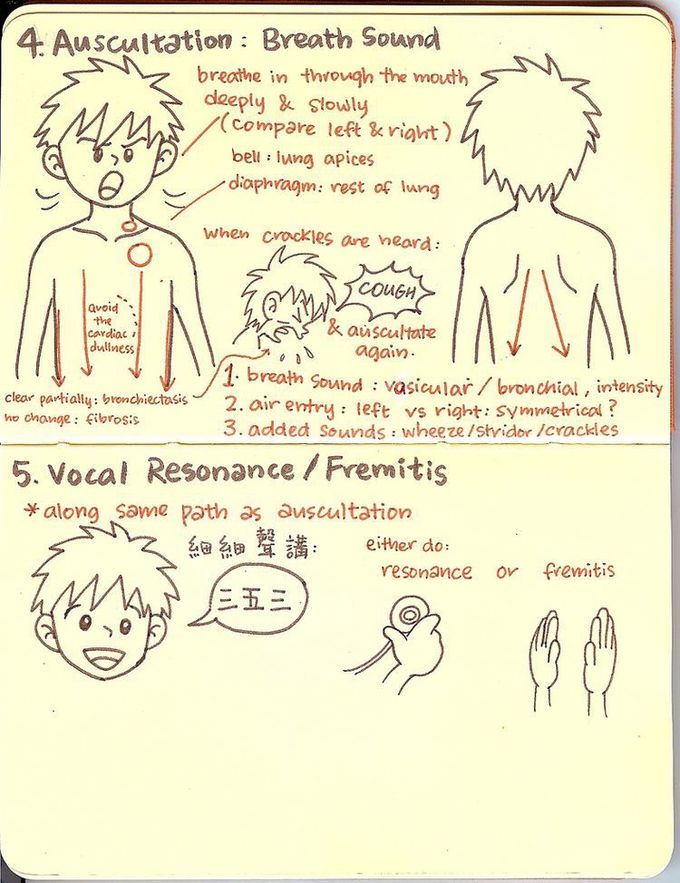 4. Auscultation: Breath Sound
breathe in through the mouth
deeply & slowly
(compare left & right)
bell: lung apices
diaphragm: rest of lung
when crackles are heard:
COUGH
& auscultate
again.
Avoid
the
cardiac
dullness
clear partially: bronchiectasis
no change: fibrosis
1. breath sound: vasicular/bronchial, intensity
2. air entry: left vs right: symmetrical?
3. added sounds: wheeze/stridor/crackles
5. Vocal Resonance/Fremitis
*along same path as auscultation
細細聲講:
三五三
either do:
resonance or fremitis